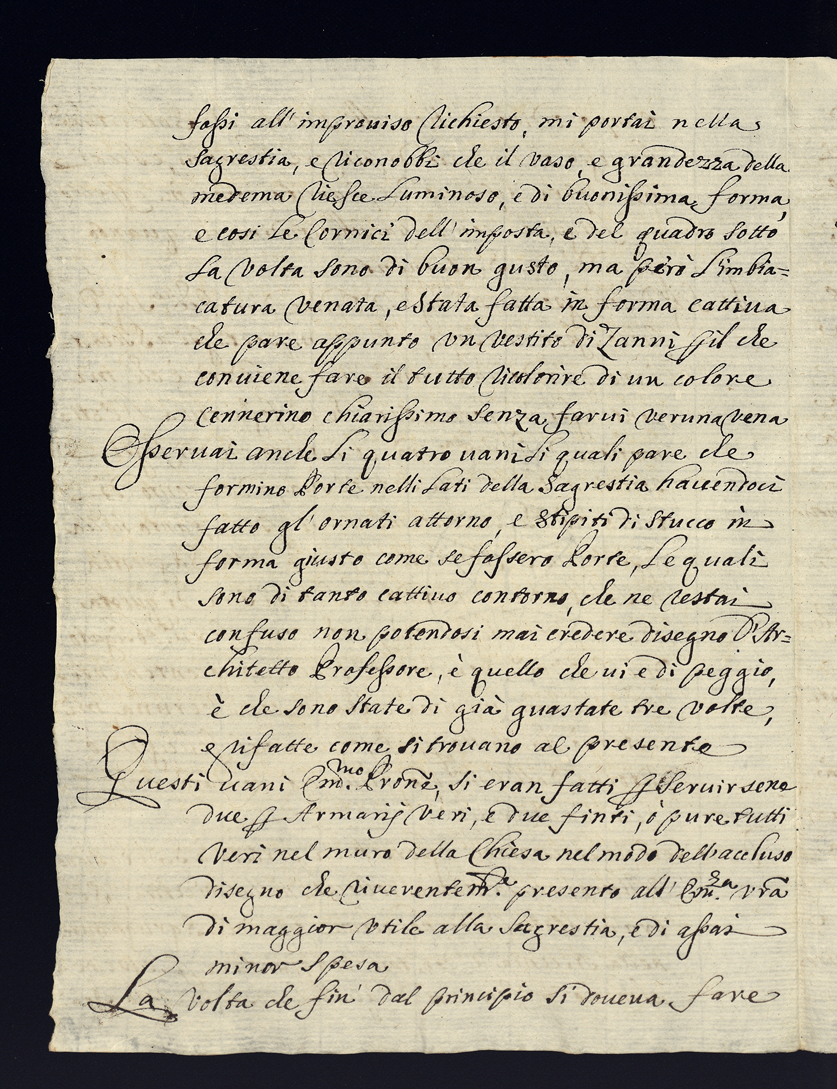 fossi all'improuiso richiesto, mi portai nella
Sagrestia, e riconobbi che il vaso, e grandezza della
medema riesce Luminoso, e di buonissima forma,
e cosi Le Cornici dell'imposta, e del quadro sotto
La volta sono di buon gusto, ma però L'imbia=
catura venata, e Stata fatta in forma cattiua
che pare appunto vn vestito di Zanni p il che
conuiene fare il tutto ricolorire di un colore
Cennerino chiarissimo senza farui veruna vena
Osseruai anche Li quatro uani Li quali pare che
formino Porte nelli Lati della Sagrestia hauendoci
fatto gl'ornati attorno, e Stipiti di Stucco in
forma giusto come se fossero Porte, Le quali
sono di tanto cattiuo contorno, che ne restai
confuso non potendosi mai credere disegno d'Ar=
chitetto Professore, è quello che ui e di peggio,
è che sono State di già guastate tre volte,
e rifatte come si trouano al presente
Questi uani Em.mo Pronē, si eran fatti p seruirsene
due p Armarij veri, e due finti, ò pure tutti
veri nel muro della Chiesa nel modo dell'accluso
disegno che riuerentem.te presento all'Em.za vrā
di maggior vtile alla Sagrestia, e di assai
minor spesa
La volta che fin' dal principio si doueua fare